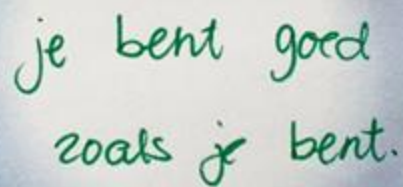 je bent goed
zoals je bent.